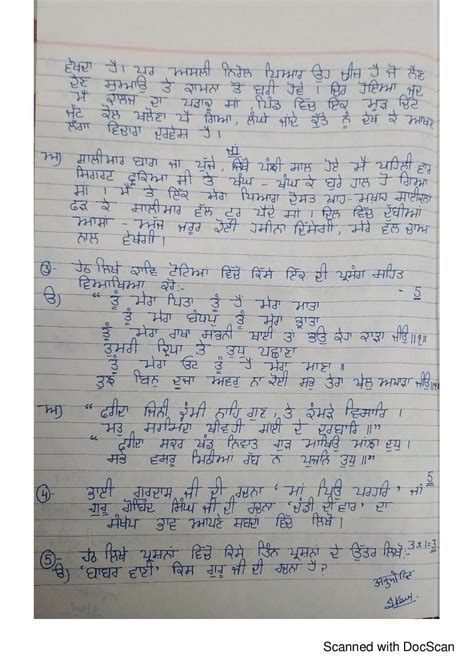 ਵੇਖਦਾ ਹੈ। ਪਰ ਅਸਲੀ ਨਿਰੋਲ ਪਿਆਰ ਉਹ ਚੀਜ਼ ਹੈ ਜੋ ਲੈਣ
ਦੇਣ ਸੁਆਰਥ ਤੇ ਕਾਮਨਾ ਤੋਂ ਬੁਰੀ ਹੋਵੇ। ਚਿਰ ਹੋਇਆ ਜਦ
ਮੈਂ ਕਾਲਜ ਦਾ ਪੜਾਕੂ ਸਾਂ, ਪਿੰਡ ਵਿੱਚ ਇਕ
ਜੱਟ ਕੋਲ ਖਲੋਣਾ ਪੈ ਗਿਆ, ਲੰਘੇ ਜਾਂਦੇ ਕੁੱਤੇ ਨੂੰ ਦੇਖ ਕੇ ਆਖਣ
ਲੱਗਾ ਵਿਚਾਰਾ ਦਰਵੇਸ਼ ਹੈ।
ਅ) ਸ਼ਾਲੀਮਾਰ ਬਾਗ ਜਾ ਪੁੱਜੇ, ਪੰਝੀ ਸਾਲ ਹੋਏ ਮੈਂ ਪਹਿਲੀ ਵਾਰ
ਸਿਗਰਟ ਫੂਕਿਆ ਸੀ ਤੇ ਖੰਘ - ਖੰਘ ਕੇ ਬੁਰੇ ਹਾਲ ਹੋ ਗਿਆ
ਸਾਂ। ਮੈਂ ਤੇ ਇੱਕ ਮੇਰਾ ਪਿਆਰਾ ਦੋਸਤ ਸਾਈਕਲਾਂ
ਫੜ ਕੇ ਸ਼ਾਲੀਮਾਰ ਵੱਲ ਟੁਰ ਪੈਂਦੇ ਸਾਂ। ਦਿਲ ਵਿੱਚ ਦੱਬੀਆਂ
ਆਸਾਂ - ਅੱਜ ਜ਼ਰੂਰ ਕੋਈ ਹਸੀਨਾ ਦਿਸੇਗੀ, ਮੇਰੇ ਵੱਲ ਚਾਅ
ਨਾਲ ਵੇਖੇਗੀ।
③- ਹੇਠ ਲਿਖੇ ਕਾਵਿ ਟੋਟਿਆਂ ਵਿਚੋਂ ਕਿਸੇ ਇੱਕ ਦੀ ਪ੍ਰਸੰਗ ਸਹਿਤ
ਵਿਆਖਿਆ ਕਰੋ:- - 5
ੳ) "ਤੂੰ ਮੇਰਾ ਪਿਤਾ ਤੂੰ ਹੈ ਮੇਰਾ ਮਾਤਾ
ਤੂੰ ਮੇਰਾ ਬੰਧਪੁ ਤੂੰ ਮੇਰਾ ਭ੍ਰਾਤਾ
ਤੂੰ ਮੇਰਾ ਰਾਖਾ ਸਭਨੀ ਥਾਈ ਤਾਂ ਭਉ ਕੇਹਾ ਕਾੜਾ ਜੀਉ॥੧॥
ਤੁਮਰੀ ਕ੍ਰਿਪਾ ਤੇ ਤੁਧੁ ਪਛਾਣਾ
ਤੂੰ ਮੇਰੀ ਓਟ ਤੂੰ ਹੈ ਮੇਰਾ ਮਾਣਾ॥
ਤੁਝ ਬਿਨੁ ਦੂਜਾ ਅਵਰੁ ਨਾ ਕੋਈ ਸਭੁ ਤੇਰਾ ਖੇਲੁ ਅਖਾੜਾ ਜੀਉ
ਅ) "ਫਰੀਦਾ ਜਿਨੀ ਕੰਮੀ ਨਾਹਿ ਗੁਣ, ਤੇ ਕੰਮੜੇ ਵਿਸਾਰਿ।
ਮਤੁ ਸਰਮਿੰਦਾ ਥੀਵਹੀ ਸਾਂਈ ਦੇ ਦਰਬਾਰਿ॥"
"ਫਰੀਦਾ ਸਕਰ ਖੰਡੁ ਨਿਵਾਤ ਗੁੜੁ ਮਾਖਿਓ ਮਾਂਝਾ ਦੁਧੁ।
ਸਭੇ ਵਸਤੂ ਮਿਠੀਆਂ ਰੱਬ ਨ ਪੁਜਨਿ ਤੁਧੁ॥"
5
④- ਭਾਈ ਗੁਰਦਾਸ ਜੀ ਦੀ ਰਚਨਾ 'ਮਾਂ ਪਿਓ ਪਰਹਰਿ' ਜਾਂ
ਗੁਰੂ ਗੋਬਿੰਦ ਸਿੰਘ ਜੀ ਦੀ ਰਚਨਾ 'ਚੰਡੀ ਦੀ ਵਾਰ' ਦਾ
ਸੰਖੇਪ ਭਾਵ ਆਪਣੇ ਸ਼ਬਦਾਂ ਵਿੱਚ ਲਿਖੋ।
⑤- ਹੇਠ ਲਿਖੇ ਪ੍ਰਸ਼ਨਾਂ ਵਿੱਚੋਂ ਕਿਸੇ ਤਿੰਨ ਪ੍ਰਸ਼ਨਾਂ ਦੇ ਉੱਤਰ ਲਿਖੋ:- 3x1=3
ੳ) 'ਬਾਬਰ ਵਾਣੀ' ਕਿਸ ਗੁਰੂ ਜੀ ਦੀ ਰਚਨਾ ਹੈ?
Scanned with DocScan